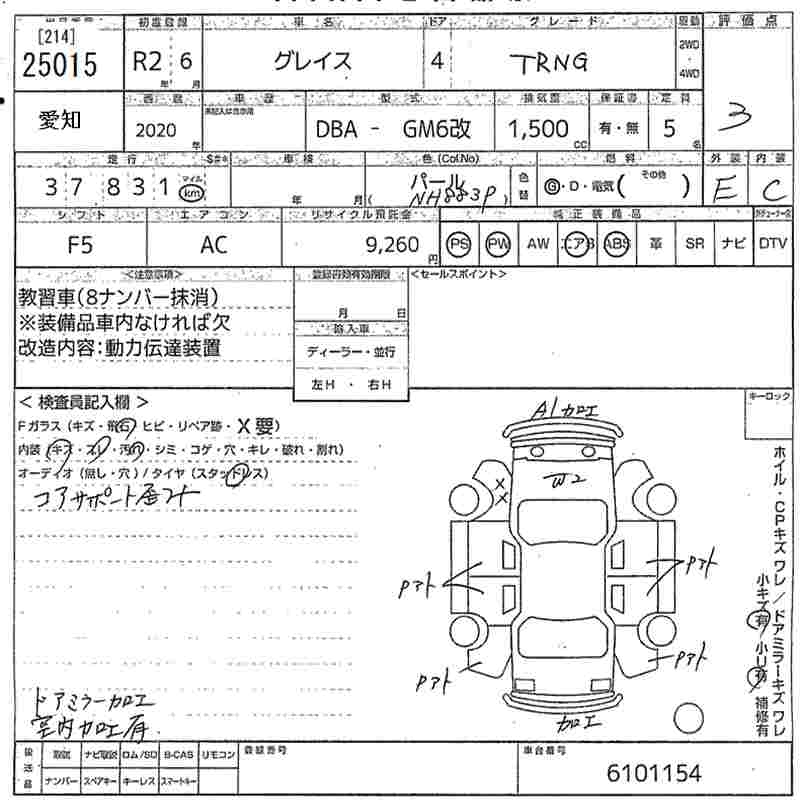 [214]
25015
初度登録
R2 6
年 月
車名
グレイス
ドア
4
グレード
TRNG
駆動
2WD
4WD
評価点
3
愛知
西暦
2020
年
車歴
型式
DBA - GM6改
排気量
1,500
CC
保証書
有・無
定員
5
名
走行
3 7 8 3 1
マイル
km
S#*
車検
年 月
色(Col.No)
パール
(NH883P)
色替
燃料
G・D・電気( その他 )
外装
E
内装
C
シフト
F5
エアコン
AC
リサイクル預託金
9,260
円
純正装備品
PS PW AW エアB ABS 革 SR ナビ DTV
<注意事項>
教習車(8ナンバー抹消)
※装備品車内なければ欠
改造内容:動力伝達装置
登録再有効期限
月 日
輸入車
ディーラー・並行
左H ・ 右H
<セールスポイント>
キーロック
< 検査員記入欄 >
Fガラス (キズ・飛石・ヒビ・リペア跡・X要)
内装 (キズ・スレ・汚れ・シミ・コゲ・穴・キレ・破れ・割れ)
オーディオ (無し・穴) / タイヤ (スタッドレス)
コアサポート
A1 加工
W2
X
X
Pアト
Pアト
Pアト
Pアト
加工
ドアミラー加工
室内加工有
ホイル・CPキズ ワレ/ドアミラーキズ ワレ
小キズ有/小U有 補修有
後送品
取説 ナビ取説 ロム/SD B-CAS リモコン
ナンバー スペアキー キーレス スマートキー
登録番号
車台番号
6101154